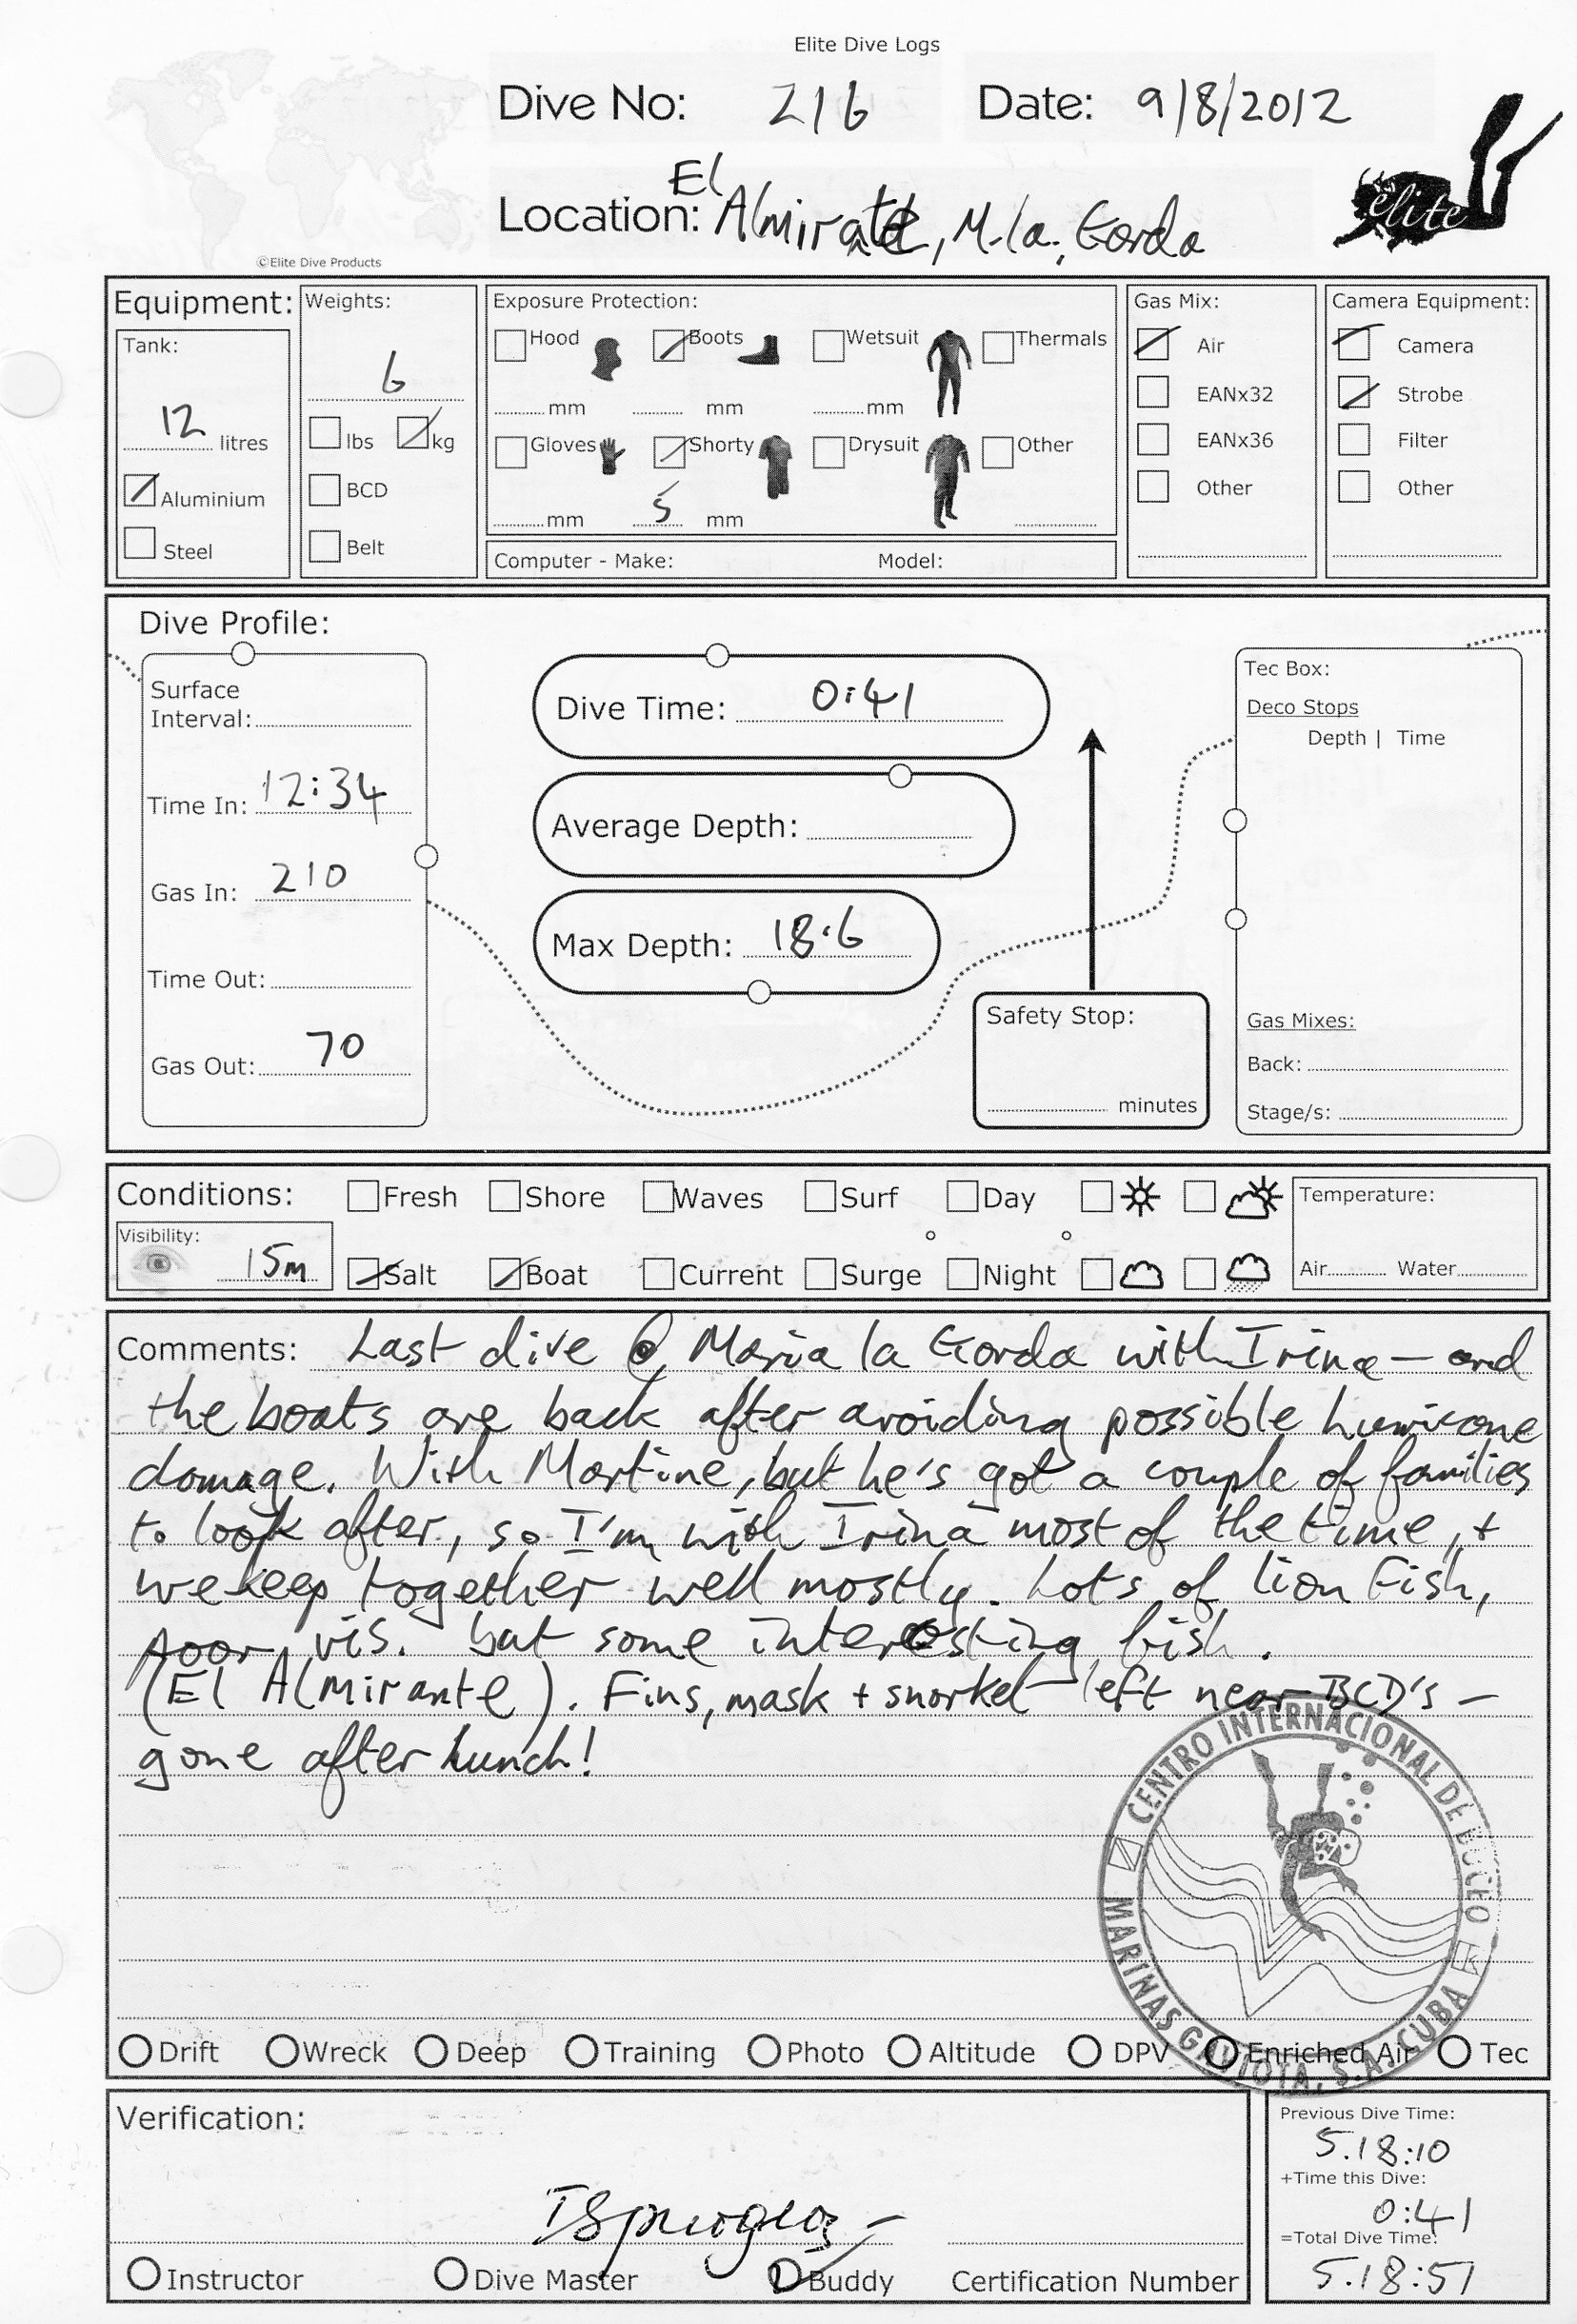 Elite Dive Logs
Dive No: 216 Date: 9/8/2012
El
Location: Almirante, M. la, Gorda
elite
©Elite Dive Products
Equipment:
Tank:
12 litres
Aluminium
Steel
Weights:
6
lbs kg
BCD
Belt
Exposure Protection:
Hood Boots Wetsuit Thermals
mm mm mm
Gloves Shorty Drysuit Other
mm 5 mm
Computer - Make: Model:
Gas Mix:
Air
EANx32
EANx36
Other
Camera Equipment:
Camera
Strobe
Filter
Other
Dive Profile:
Surface
Interval:
Time In: 12:34
Gas In: 210
Time Out:
Gas Out: 70
Dive Time: 0:41
Average Depth:
Max Depth: 18.6
Safety Stop:
minutes
Tec Box:
Deco Stops
Depth | Time
Gas Mixes:
Back:
Stage/s:
Conditions: Fresh Shore Waves Surf Day
Visibility:
15m Salt Boat Current Surge Night
Temperature:
Air Water
Comments: Last dive @ Maria la Gorda with Irina - and
the boats are back after avoiding possible hurricane
damage. With Martine, but he's got a couple of families
to look after, so I'm with Irina most of the time, +
we keep together well mostly. Lots of lion fish,
poor vis. but some interesting fish.
(El Almirante). Fins, mask + snorkel left near BCD's -
gone after lunch!
CENTRO INTERNACIONAL DE BUCEO
MARINAS GAVIOTA, S.A. CUBA
Drift Wreck Deep Training Photo Altitude DPV Enriched Air Tec
Verification:
Instructor Dive Master Buddy Certification Number
Previous Dive Time:
5.18:10
+Time this Dive:
0:41
=Total Dive Time:
5.18:51